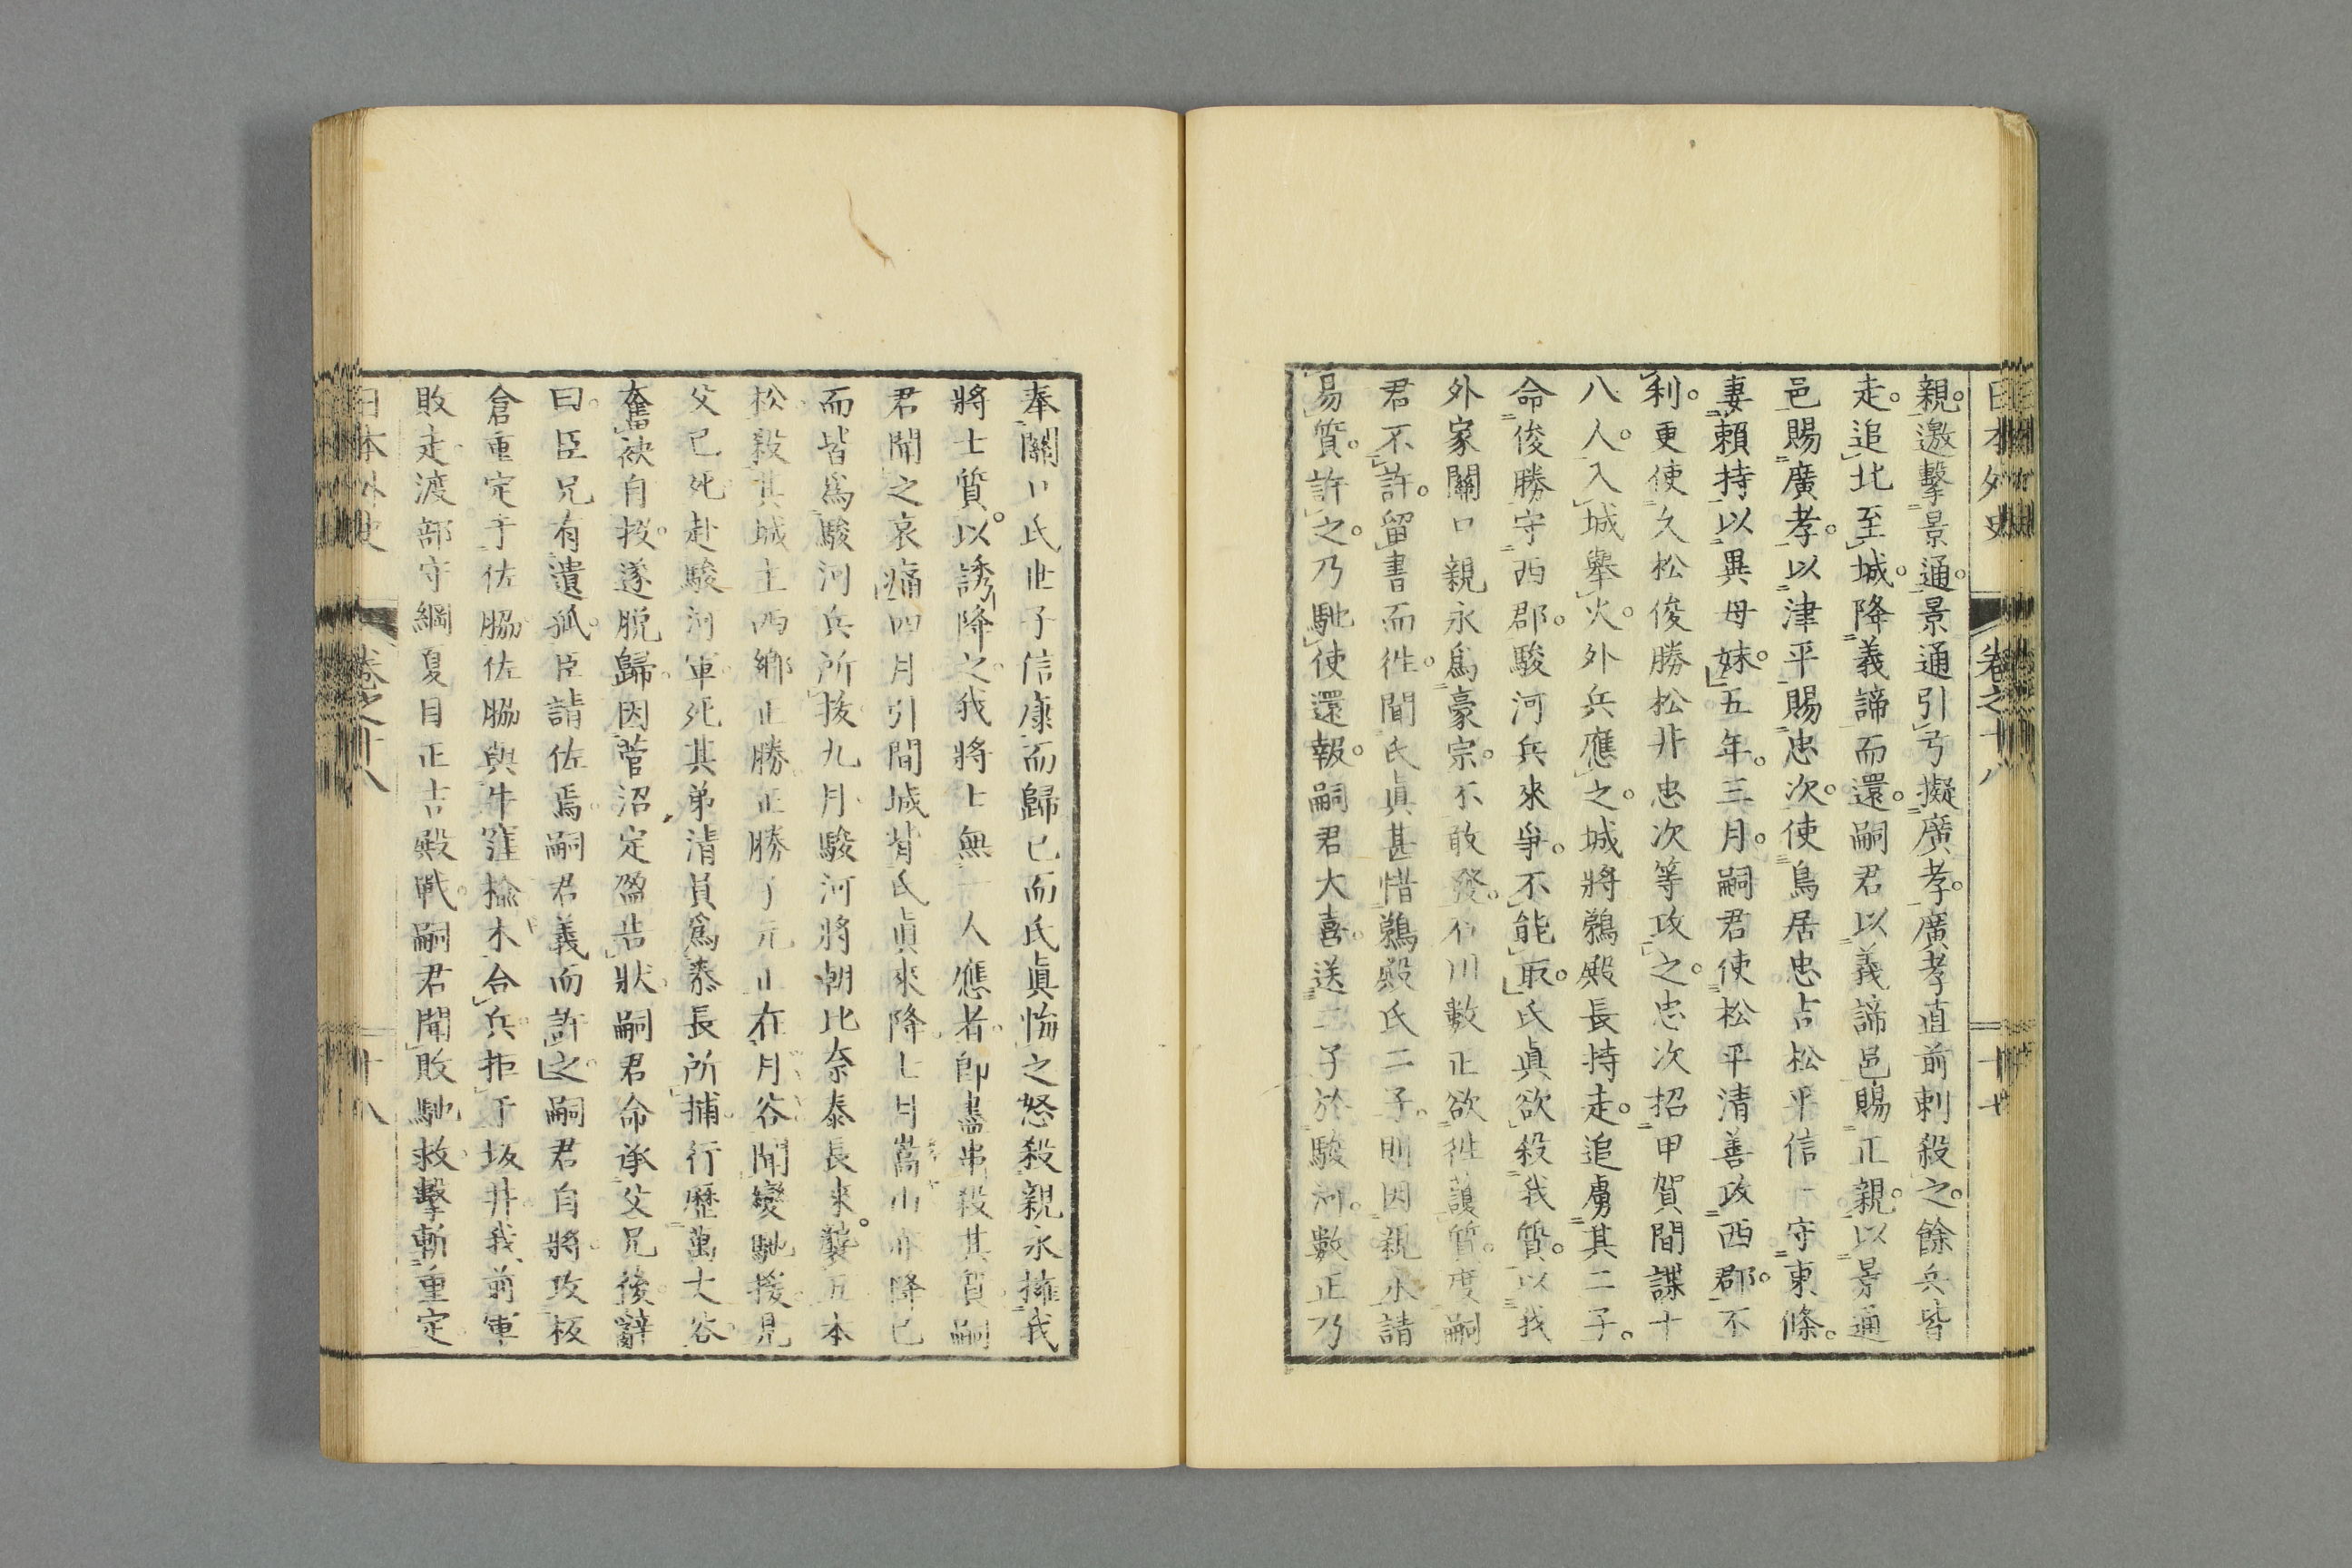 日本外史 卷之十八 十七
親。邀擊景通。景通引弓擬廣孝。廣孝直前刺殺之。餘兵皆
走。追北至城。降義諦而還。嗣君以義諦邑賜正親。以景通
邑賜廣孝。以津平賜忠次。使鳥居忠吉松平信一守東條。
妻賴持以異母妹。五年。三月。嗣君使松平清善攻西郡。不
利。更使久松俊勝松井忠次等攻之。忠次招甲賀間諜十
八人。入城擧火。外兵應之。城將鵜殿長持走。追虜其二子。
命俊勝守西郡。駿河兵來爭。不能取。氏眞欲殺我質。以我
外家關口親永爲豪宗。不敢發。石川數正欲往護質。度嗣
君不許。留書而往。聞氏眞甚惜鵜殿氏二子。則因親永請
易質。許之。乃馳使還報。嗣君大喜。送二子於駿河。數正乃
奉關口氏世子信康而歸已而氏眞悔之怒殺親永擁我
將士質。以誘降之。我將士無一人應者。卽盡串殺其質。嗣
君聞之哀痛四月引間城背氏眞來降。七月嵩山亦降已
而皆爲駿河兵所拔九月駿河將朝比奈泰長來。襲五本
松。殺其城主西鄉正勝。正勝子元正在月谷。聞變馳援。見
父已死赴駿河軍。死其弟清員爲泰長所捕。行歷萬大谷。
奮袂自投。遂脫歸。因菅沼定盈告狀。嗣君命承父兄後。辭
曰。臣兄有遺孤。臣請佐焉。嗣君義而許之。嗣君自將。攻板
倉重定于佐脇。佐脇與牛窪楡木合兵。拒于坂井。我前軍
敗走。渡部守綱夏目正吉殿戰。嗣君聞敗馳救。擊斬重定。
日本外史 卷之十八 十八